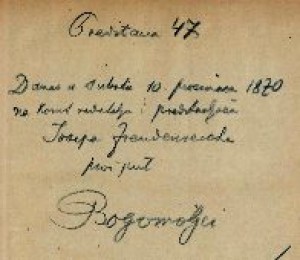 Predstava 47
Danas u subotu 10. prosinaca 1870
na korist redatelja i predstavljača
Josipa Freudenreicha
prvi put
Bogomoljci